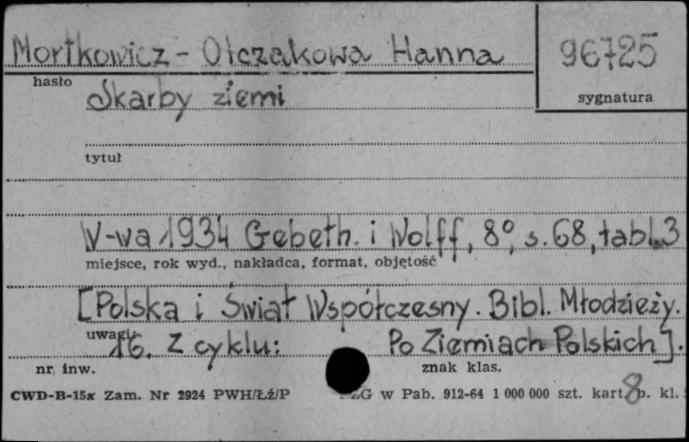 Mortkowicz - Olczakowa Hanna
96725
hasło
sygnatura
Skarby ziemi
tytuł
W-wa 1934 Gebeth. i Wolff, 8°, s. 68, tabl. 3
miejsce, rok wyd., nakładca, format, objętość
[Polska i Świat Współczesny. Bibl. Młodzieży.
uwagi
16. Z cyklu: Po Ziemiach Polskich].
nr. inw.
znak klas.
CWD-B-15x Zam. Nr 2924 PWH/Łź/P ZG w Pab. 912-64 1 000 000 szt. kart. b. kl.
8